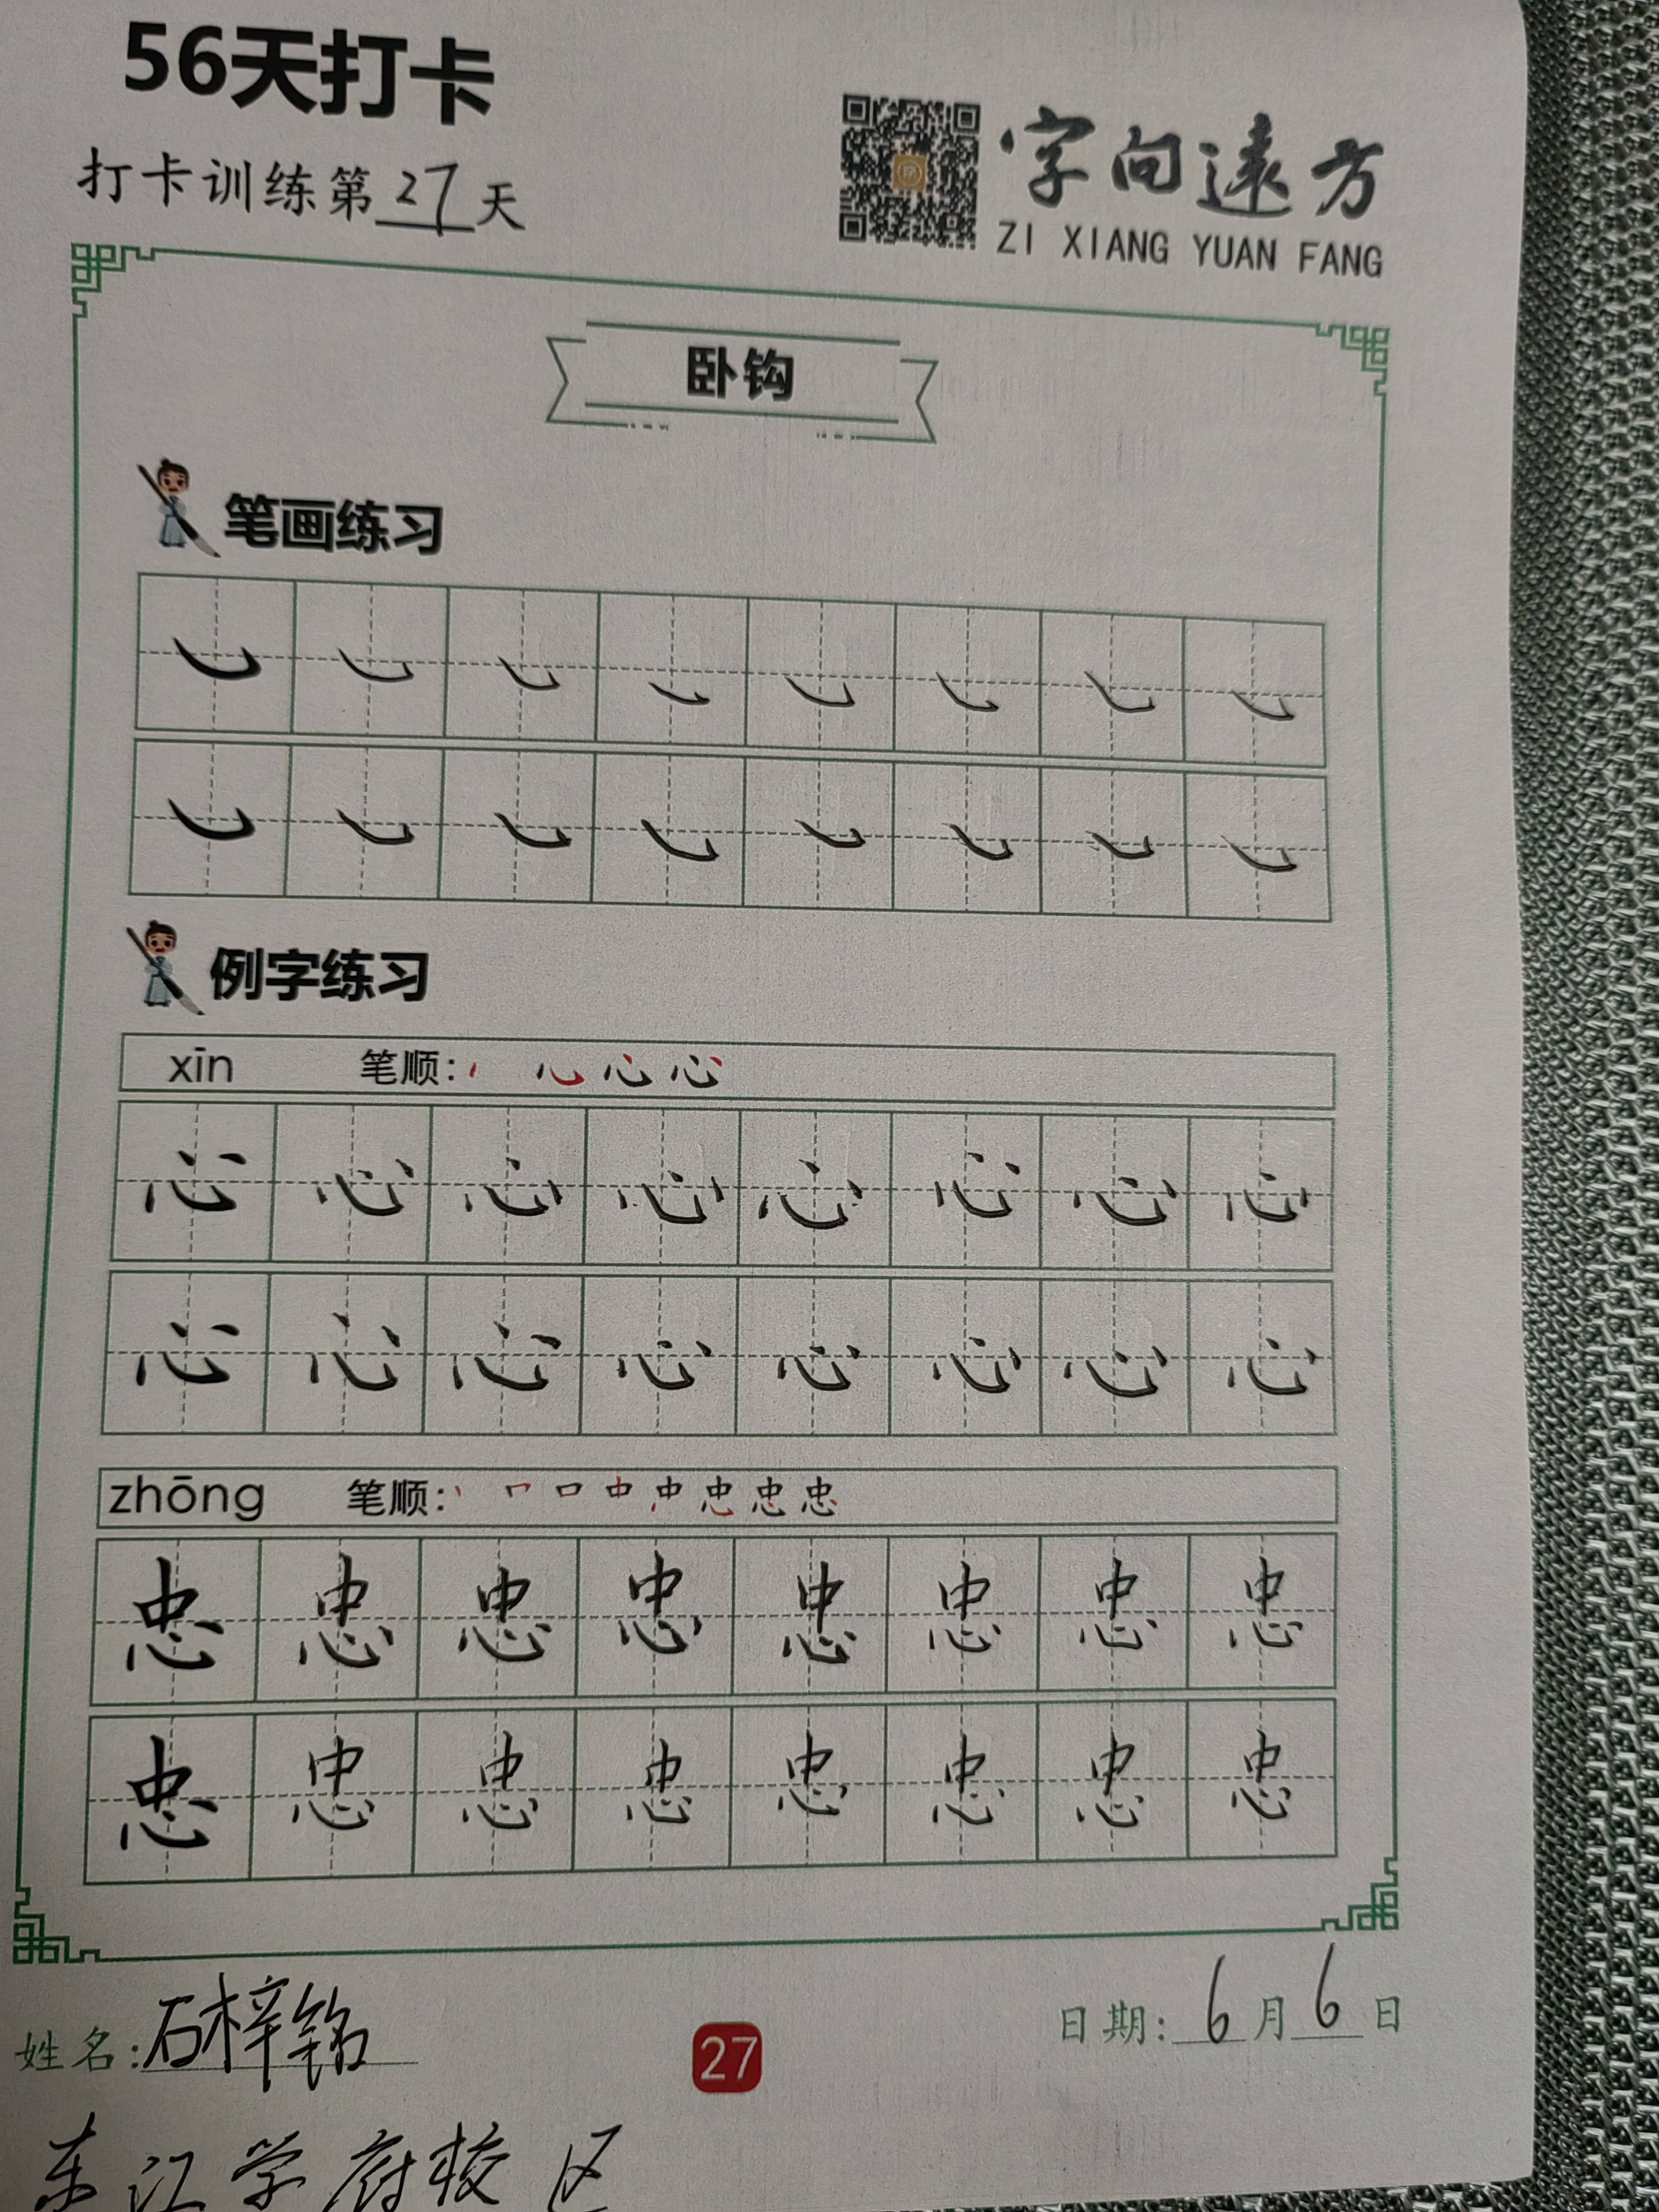 56天打卡
打卡训练第27天
字向遠方
ZI XIANG YUAN FANG
卧钩
笔画练习
例字练习
xīn 笔顺:
心 心 心 心 心 心 心 心
心 心 心 心 心 心 心 心
zhōng 笔顺: 丨 口 口 中 中 忠 忠 忠
忠 忠 忠 忠 忠 忠 忠 忠
忠 忠 忠 忠 忠 忠 忠 忠
姓名:石梓铭
27
日期:6月6日
东江学府校区